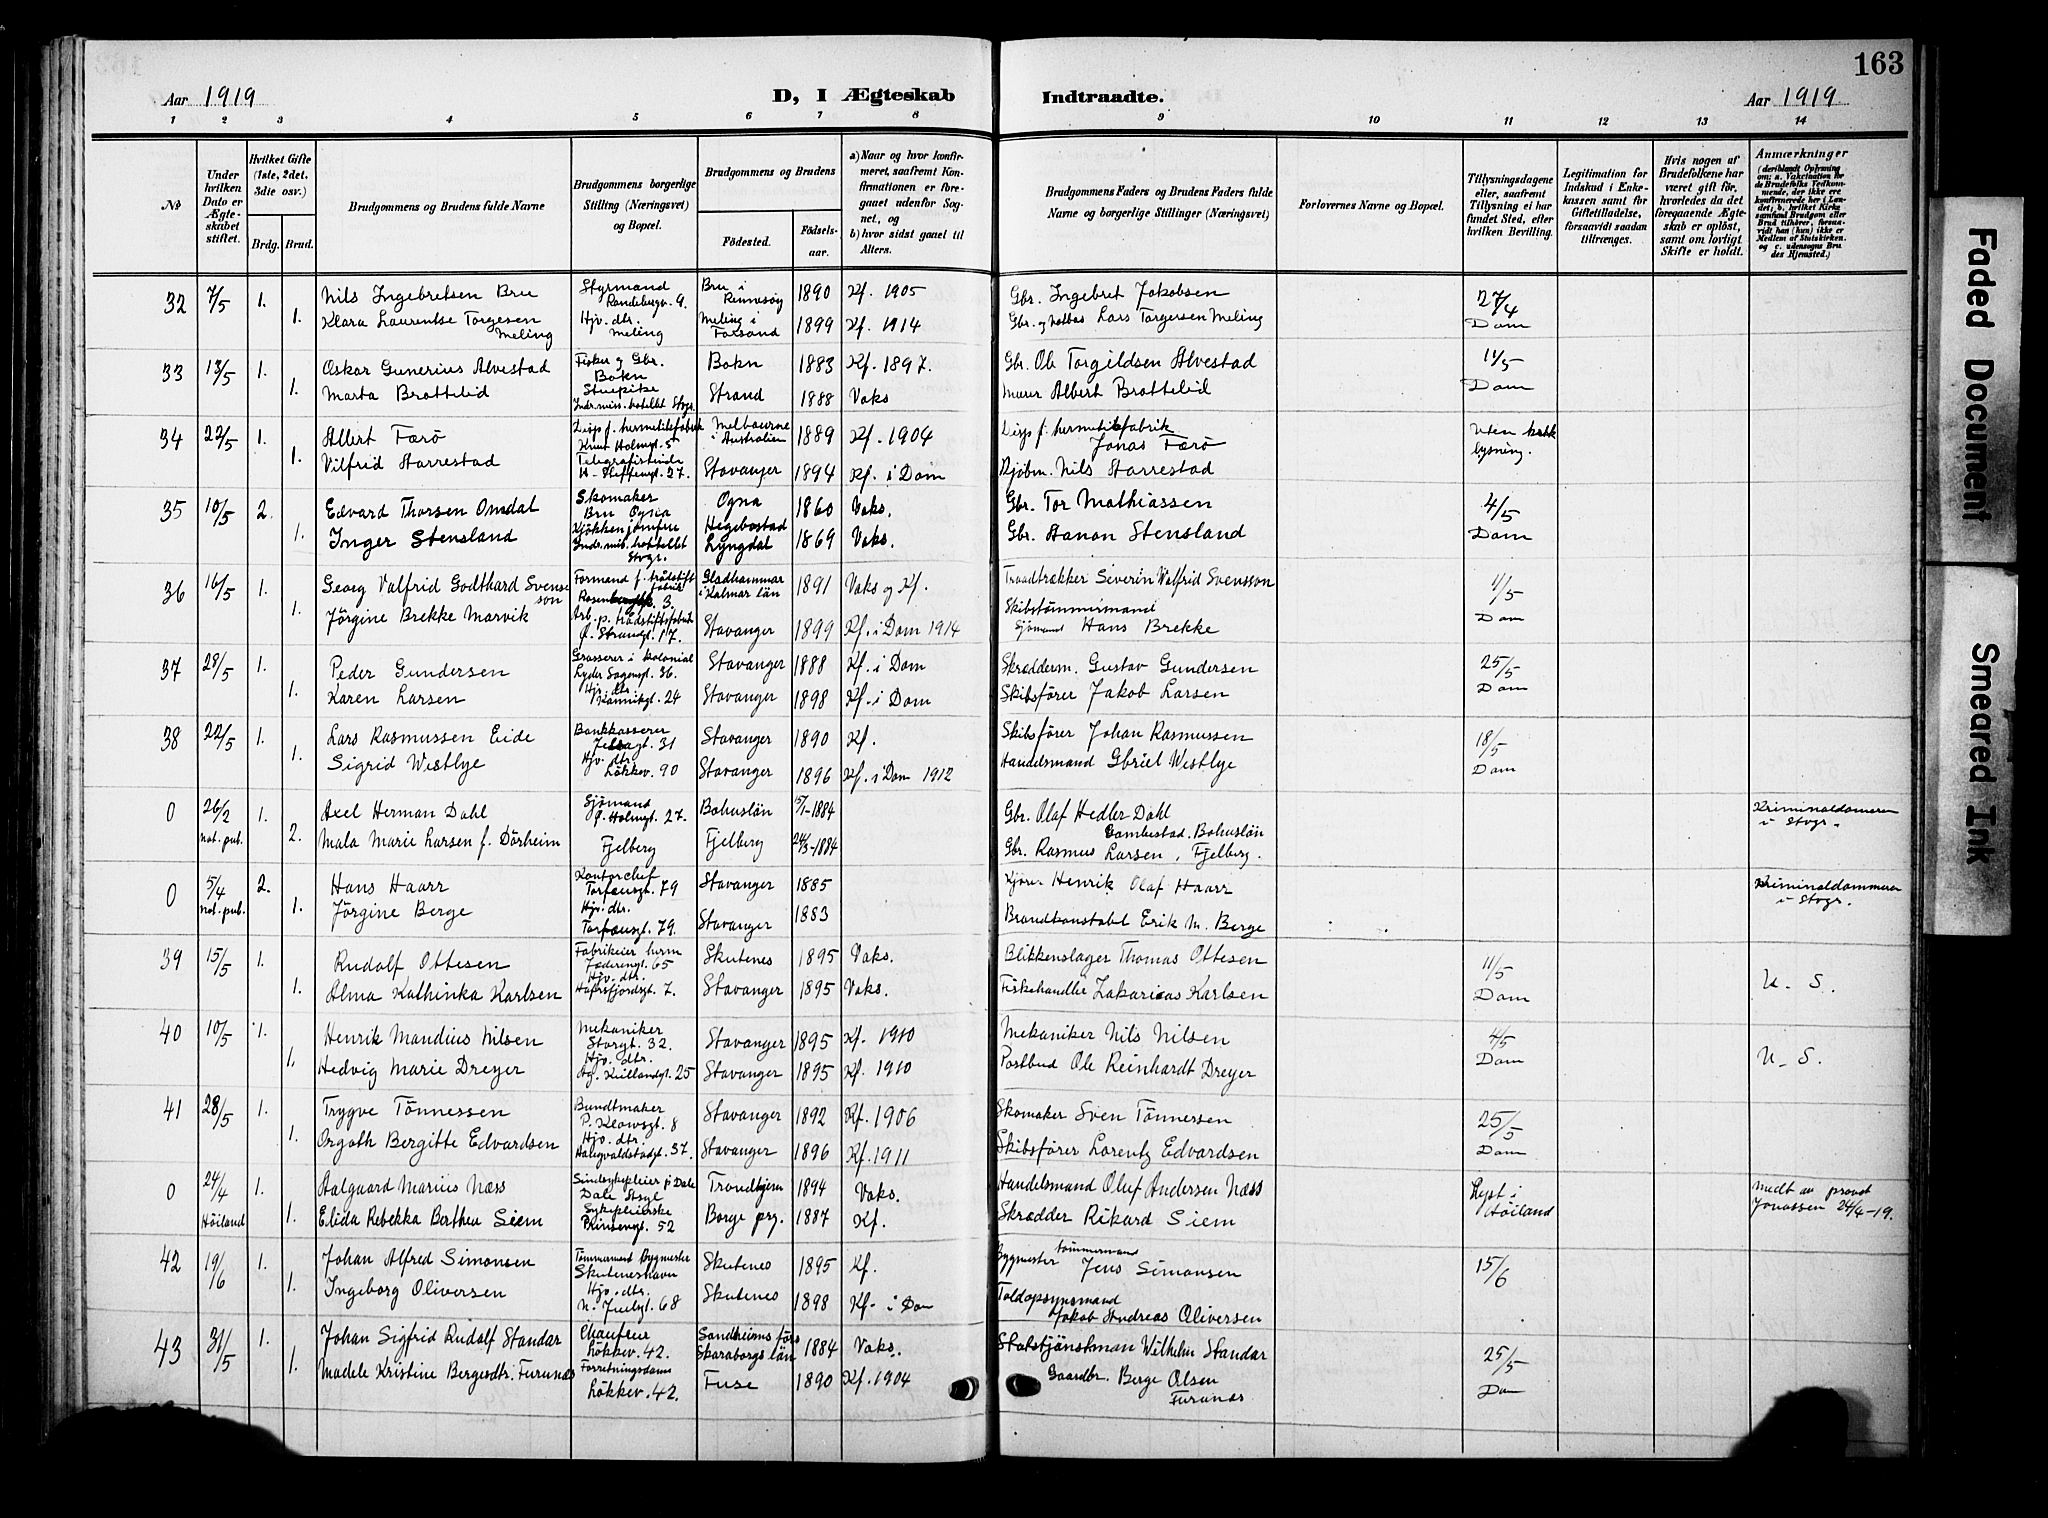 163
Aar 1919
D, I Ægteskab
Indtraadte.
Aar 1919
1 2 3 4 5 6 7 8 9 10 11 12 13 14
No
Under hvilken Dato er Ægteskabet stiftet.
Hvilket Gifte (1ste, 2det, 3die osv.)
Brdg. Brud.
Brudgommens og Brudens fulde Navne
Brudgommens borgerlige Stilling (Næringsvei) og Bopæl.
Brudgommens og Brudens
Fødested.
Fødselsaar.
a) Naar og hvor konfirmeret, saafremt Konfirmationen er foregaaet udenfor Sognet, og
b) hvor sidst gaaet til Alters.
Brudgommens Faders og Brudens Faders fulde Navne og borgerlige Stillinger (Næringsvei)
Forlovernes Navne og Bopæl.
Tillysningsdagene eller, saafremt Tillysning ei har fundet Sted, efter hvilken Bevilling.
Legitimation for Indskud i Enkekassen samt for Giftetilladelse, forsaavidt saadan tiltrænges.
Hvis nogen af Brudefolkene har været gift før, hvorledes da det foregaaende Ægteskab er opløst, samt om lovligt Skifte er holdt.
Anmærkninger
(deriblandt Oplysning om: a. Vakcination for de Brudefolks Vedkommende, der ikke ere konfirmerede her i Landet; b. hvilket Kirkesamfund Brudgom eller Brud tilhører, forsaavidt han (hun) ikke er Medlem af Statskirken, og c. udensogns Brudes Hjemsted.)
32 7/5 1. Nils Ingebretsen Bru Styrmand Randebergv. 9. Bru i Rennesøy 1890 Kf. 1905 Gbr. Ingebret Jakobsen 27/4
1. Klara Laurentse Torgesen Meling Hjv. dtr. Meling Meling i Forsand 1899 Kf. 1914 Gbr. og Lars Torgersen Meling Dom
33 13/5 1. Oskar Gunerius Alvestad Fisker og Gbr. Bokn Bokn 1883 Kf. 1897. Gbr. Ole Torgildsen Alvestad 11/5
1. Marta Brattelid Stuepike Indr. miss. hotellet Stvgr. Strand 1888 Vaks Murer Albert Brattelid Dom
34 22/5 1. Albert Færö Disp f. hermetikfabrik Knut Holmgt. 5 Melbourne i Australien 1889 Kf. 1904 Disp f. hermetikfabrik Jonas Færö Uten
1. Vilfrid Starrestad Telegrafistinde 27. Stavanger 1894 Kf. i Dom Kjöbm. Nils Starrestad lysning.
35 10/5 2. Edvard Thorsen Omdal Skomaker Bru Ogna 1860 Vaks. Gbr. Tor Mathiassen 4/5
1. Inger Stensland Kjökkenjomfru Indr. mis. hotellet Stvgr. Hegebostad Lyngdal 1869 Vaks. Gbr. Hanon Stensland Dom
36 16/5 1. Georg Valfrid Godthard Svensson Formand f. trådstift fabrik 3. Gladhammar i Kalmar län 1891 Vaks og Kf. Traadtrækker Severin Valfrid Svensson 11/5
1. Jörgine Brekke Marvik Arb. p. trådstiftsfabrik Ö. Strandgt. 17. Stavanger 1899 Kf. i Dom 1914 Skibstömmermand Sjömand Hans Brekke Dom
37 28/5 1. Peder Gundersen Grosserer i kolonial Lyder Sagensgt. 36. Stavanger 1888 Kf. i Dom Skrædderm. Gustav Gundersen 25/5
1. Karen Larsen Hjv. dtr. Kannikgt. 24 Stavanger 1898 Kf. i Dom Skibsfører Jakob Larsen Dom
38 22/5 1. Lars Rasmussen Eide Bankkasserer 31 Stavanger 1890 Kf. Skibsfører Johan Rasmussen 18/5
1. Sigrid Westbye Hjv. dtr. Lökkev. 90 Stavanger 1896 Kf. i Dom 1912 Handelsmand Gbriel Westbye Dom
0 26/2 1. Axel Herman Dahl Sjömand Ö. Holmgt. 27. Bohuslän 15/1-1884 Gbr. Olaf Hedler Dahl Bohuslän Kriminaldommeren i Stvgr.
Not. pub. 2. Mala Marie Larsen f. Dörheim Fjelberg Fjelberg 24/3-1884 Gbr. Rasmus Larsen, Fjelberg.
0 5/4 2. Hans Haarr Kontorchef Torfæusgt. 79 Stavanger 1885 Kjörer Henrik Olaf Haarr Kriminaldommeren i Stvgr.
Not. pub. 1. Jörgine Berge Hjv. dtr. Torfæusgt. 79. Stavanger 1883 Brandkonstabel Erik M. Berge
39 15/5 1. Rudolf Ottesen Fabrikeier herm Jæderengt. 65 Skutenes 1895 Vaks. Blikkenslager Thomas Ottesen 11/5
1. Alma Kathinka Karlsen Hjv. dtr. Hafrsfjordsgt. 7. Stavanger 1895 Vaks. Fiskehandler Zakarias Karlsen Dom U. S.
40 10/5 1. Henrik Mandius Nilsen Mekaniker Storgt. 32. Stavanger 1895 Kf. 1910 Mekaniker Nils Nilsen 4/5
1. Hedvig Marie Dreyer Hjv. dtr. Ag. Kiellandgt. 25 Stavanger 1895 Kf. 1910 Postbud Ole Reinhardt Dreyer Dom U. S.
41 28/5 1. Trygve Tönnessen Bundtmaker P. Klowsgt. 8 Stavanger 1892 Kf. 1906 Skomaker Sven Tönnessen 25/5
1. Orgoth Bergitte Edvardsen Hjv. dtr. Haugvaldstadgt. 37. Stavanger 1896 Kf. 1911 Skibsfører Lorentz Edvardsen Dom
0 24/4 1. Aalgaard Marius Næss Sindsykepleier p. Dale Dale Trondhjem 1894 Vaks. Handelsmand Oluf Andersen Næss Lyst i Höiland Medt av provst Jonassen 24/4-19.
Höiland 1. Elida Rebekka Berthea Siem Sykepleierske Prinsensgt. 52 Borge prg. 1887 Kf. Skrædder Rikard Siem
42 19/6 1. Johan Alfred Simonsen Tömmermand Bygmester Skuteneshavn Skutenes 1895 Kf. Bygmester tömmermand Jens Simonsen 15/6
1. Ingeborg Oliversen Hjv. dtr. N. Juelsgt. 68 Skutenes 1898 Kf. i Dom Toldopsynsmand Jakob Andreas Oliversen
43 31/5 1. Johan Sigfrid Rudolf Standar Chaufeur Lökkev. 42. Sandheims förs Skaraborgs län 1884 Vaks. Statstjänstman Wilhelm Standar 25/5
1. Madele Kristine Bergesdtr. Furunæs Forretningsdame Lökkev. 42. Fuse 1890 Kf. 1904 Gaardbr. Berge Olsen Furunæs Dom
Faded Document
Smeared Ink